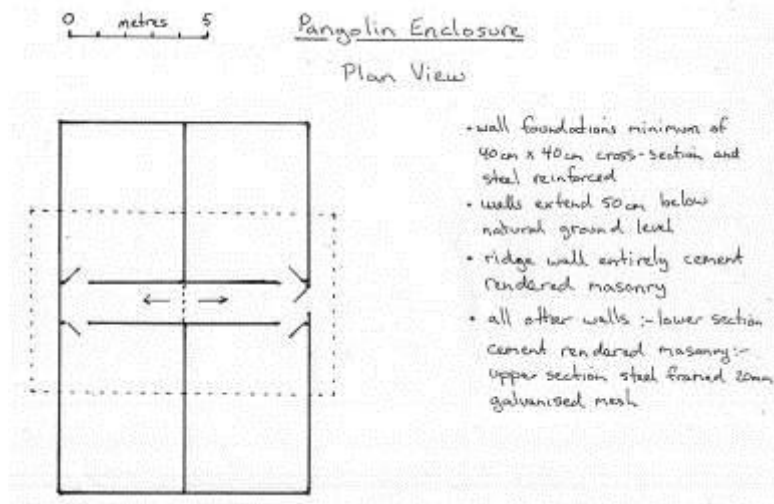 0 metres 5
Pangolin Enclosure
Plan View
• wall foundations minimum of
40cm x 40cm cross-section and
steel reinforced
• walls extend 50cm below
natural ground level
• ridge wall entirely cement
rendered masonry
• all other walls :- lower section
cement rendered masonry:-
upper section steel framed 20mm
galvanised mesh